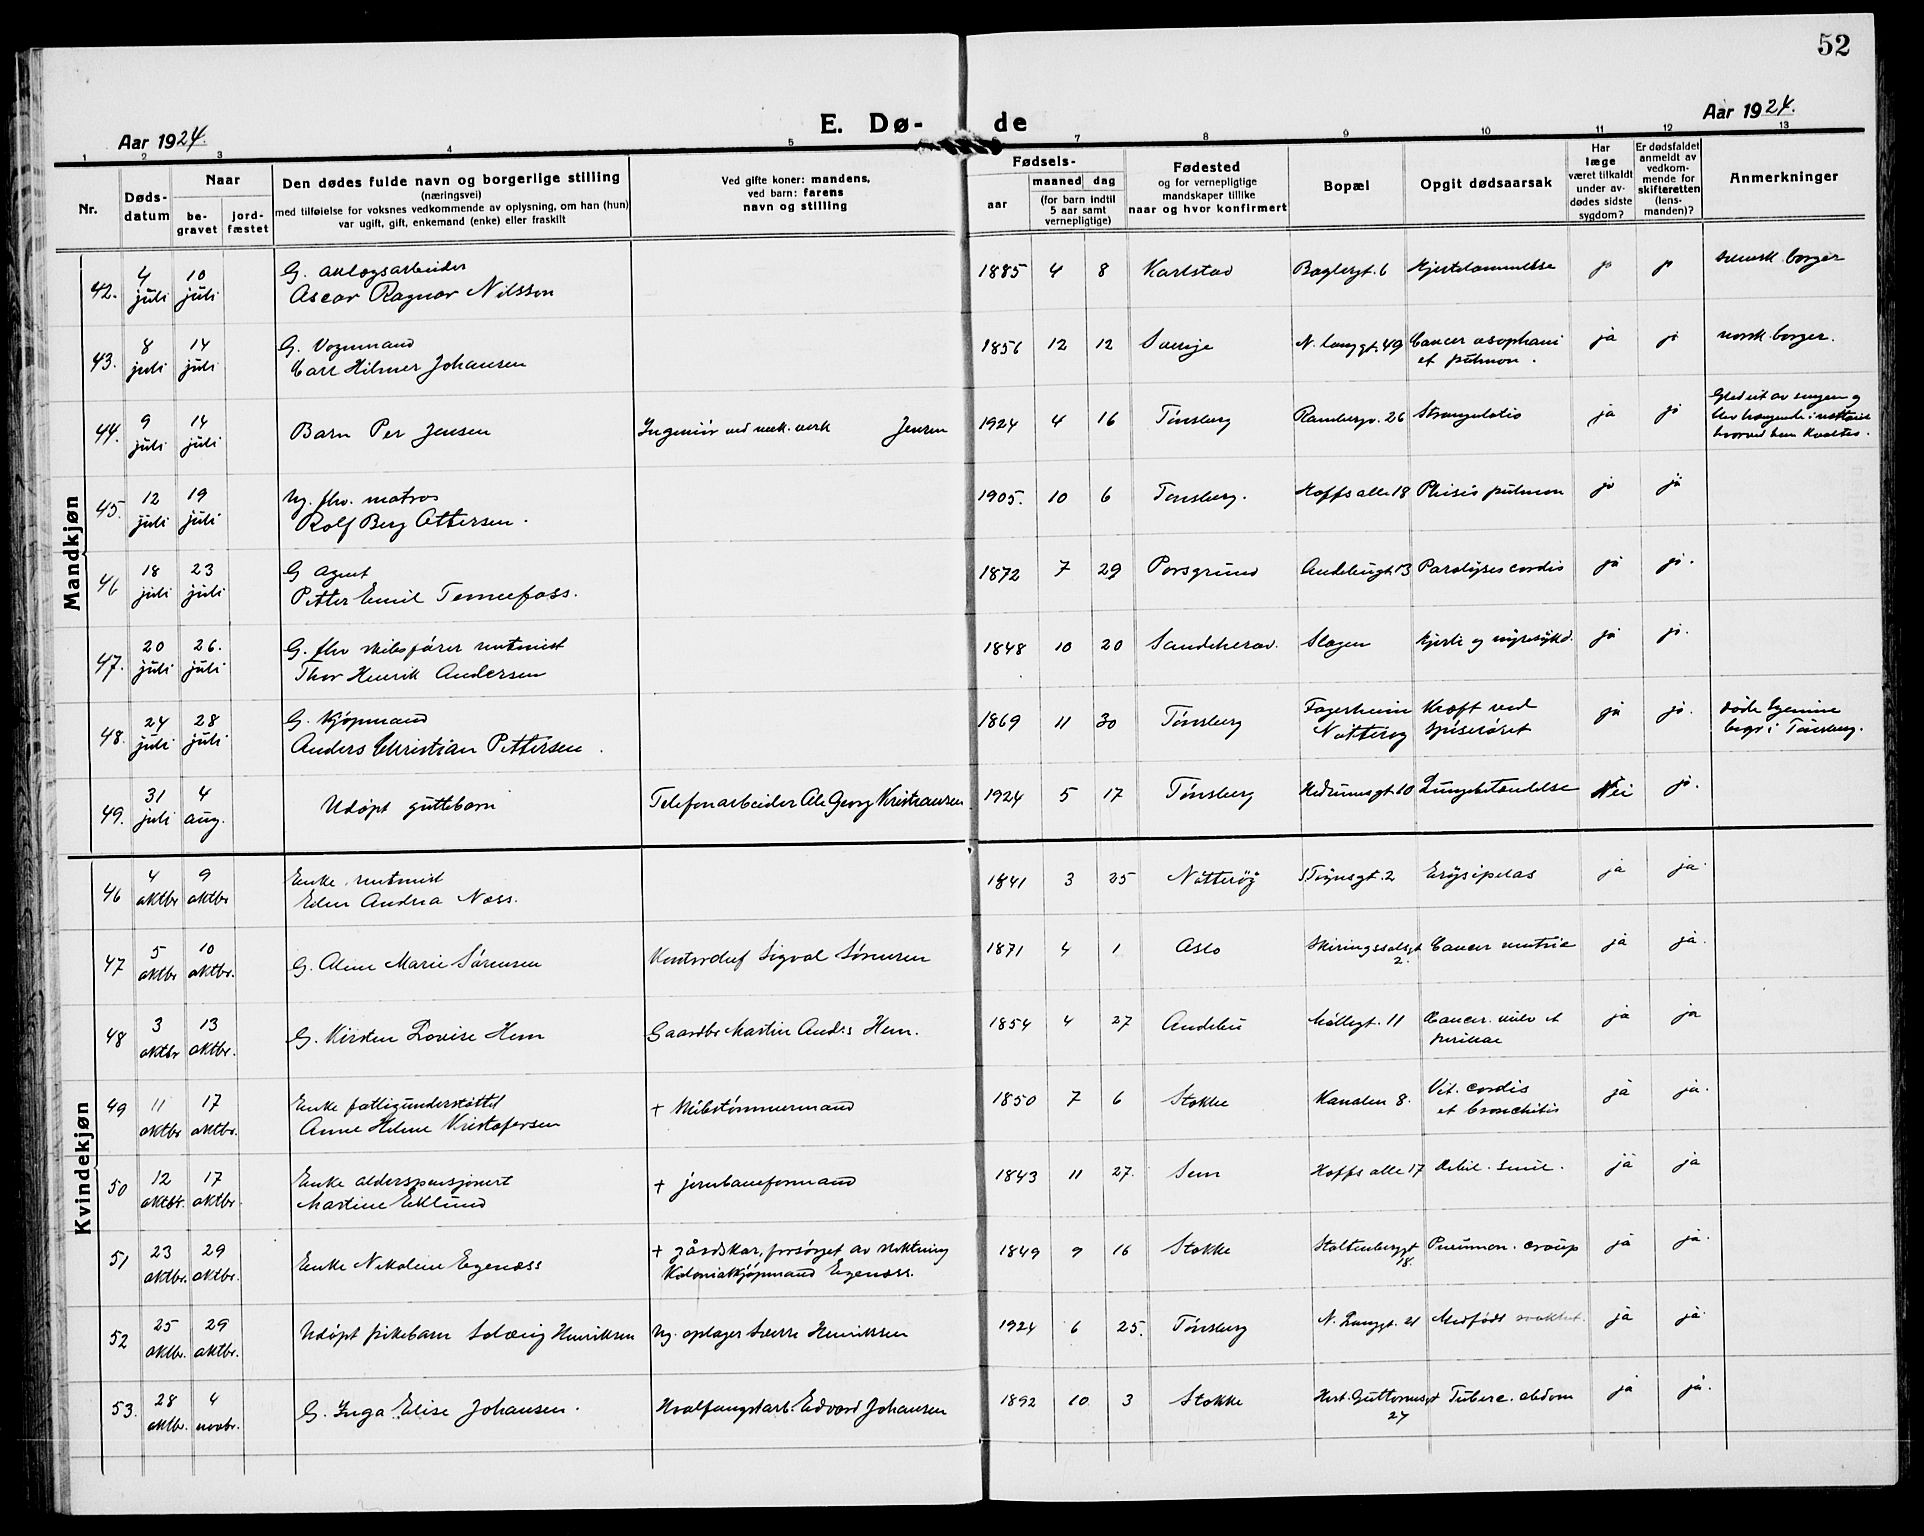 52
Aar 1924.
E. Dø-de
Aar 1924.
1 2 3 4 5 7 8 9 10 11 12 13
Nr.
Døds-
datum
Naar
be-
gravet
jord-
fæstet
Den dødes fulde navn og borgerlige stilling
(næringsvei)
med tilføielse for voksnes vedkommende av oplysning, om han (hun)
var ugift, gift, enkemand (enke) eller fraskilt
Ved gifte koner: mandens,
ved barn: farens
navn og stilling
Fødsels-
aar
maaned dag
(for barn indtil
5 aar samt
vernepligtige)
Fødested
og for vernepligtige
mandskaper tillike
naar og hvor konfirmert
Bopæl
Opgit dødsaarsak
Har
læge
været tilkaldt
under av-
dødes sidste
sygdom?
Er dødsfaldet
anmeldt av
vedkom-
mende for
skifteretten
(lens-
manden)?
Anmerkninger
Mandkjøn
42. 4 juli 10 juli G. anlægsarbeider
Oscar Ragnar Nilsson 1885 4 8 Karlstad Baglergt. 6 Hjertelammelse ja ja svensk borger
43. 8 juli 14 juli G. Vognmand
Carl Hilmer Johansen 1856 12 12 Sverige N. Langgt. 49 Cancer øsophani
et pulmon. ja ja norsk borger.
44. 9 juli 14 juli Barn Per Jensen Ingeniør ved mek. verk Jensen 1924 4 16 Tønsberg Rambergv. 26 Strangulatio ja ja Gled ut av sengen og
blev hængende i
hvorved han kvaltes.
45. 12 juli 19 juli Ug. fhv. matros
Rolf Berg Ottersen. 1905. 10 6 Tønsberg. Hoffs alle 18 Phtisis pulmon ja ja
46 18 juli 23 juli G Agent
Petter Emil Tennefoss. 1872 7 29 Porsgrund Andebugt. 13 Paralyses cordis ja ja.
47. 20 juli 26. juli G. fhv skibsfører rentenist
Thor Henrik Andersen 1848 10 20 Sandeherad. Slagen hjerte og nyresykd. ja ja.
48. 24 juli 28 juli G. Kjøpmand
Anders Christian Pettersen. 1869 11 30 Tønsberg Fagerheim
Nøtterøy Kræft ved
spiserøret ja ja. døde hjemme
begr i Tønsberg.
49. 31 juli 4 aug. Udøpt guttebarn Telefonarbeider Ole Georg Kristiansen 1924 5 17 Tønsberg Hedrumsgt. 10 Lungebetændelse Nei ja.
Kvindekjøn
46 4 oktbr 9 oktbr Enke, rentenist
Elen Andrea Næss. 1841 3 25 Nøtterøy St Olavsgt. 2 Erysipelas ja ja.
47 5 oktbr 10 oktbr. G. Oline Marie Sørensen Kontorchef Sigval Sørensen 1871 4 1 Oslo Skiringssalsgt
2. Cancer ventric ja ja.
48 3 oktbr 13 oktbr. G. Kirsten Lovise Hem Gaardbr Martin Anders Hem. 1854 4 27 Andebu Møllegt. 11 Cancer. vulv et ja ja
49 11 oktbr 17 oktbr. Enke fattigunderstøttet
Anne Helene Kristofersen + Skibstømmermand 1850 7 6 Stokke Kanalen 8. Vit. cordis
et bronchitis ja ja.
50 12 oktbr. 17 oktbr. Enke alderspensjonert
Martine Eklund + jernbaneformand 1843 11 27. Sem Hoffs alle 17 Debil. senil. ja ja
51 23 oktbr. 29 oktbr. Enke Nikoline Egenæss + gårdskar, forsørget av slektning
Kolonialkjøpmand Egenæss. 1849 9 16 Stokke Stoltenberggt
18. Pneumon. croup ja ja.
52 25 oktbr. 29 oktbr. Udøpt pikebarn Solveig Henriksen Ug. oplager Sverre Henriksen 1924 6 25. Tønsberg N. Langgt. 21 Medfødt svakhet. ja ja.
53. 28 oktbr. 4 novbr. G. Inga Elise Johansen. Hvalfangstarb. Edvard Johansen 1892 10 3 Stokke Hert. Guttormsgt
27 Tuberc. abdom ja ja.